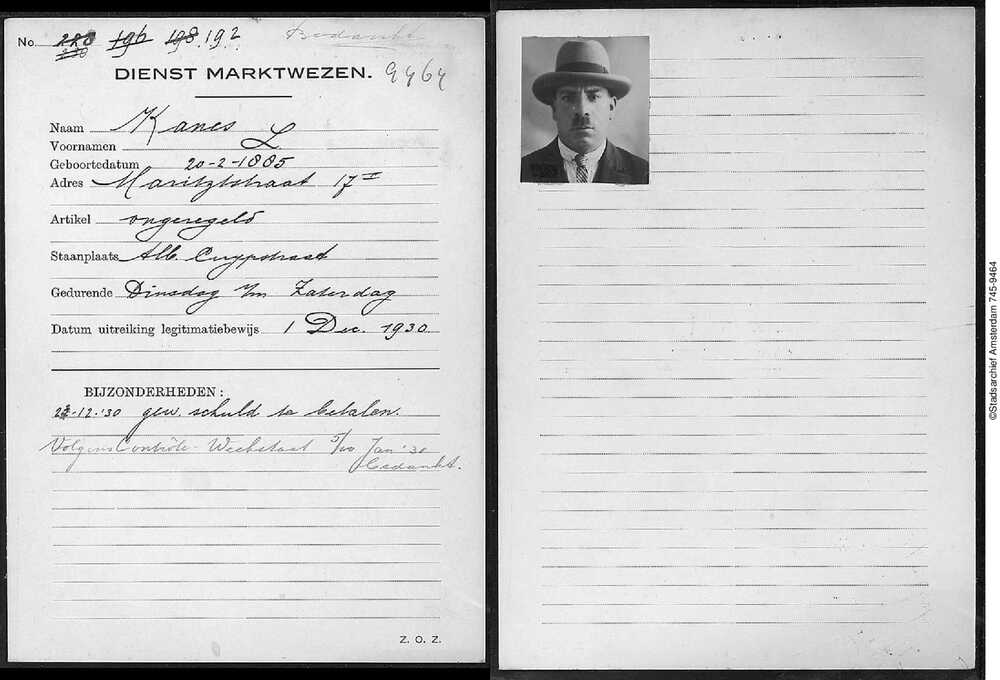 No. 228 196 198 192 Bedankt
230
DIENST MARKTWEZEN. 9464
Naam Kanes
Voornamen L
Geboortedatum 20-2-1885
Adres Maritzstraat 17 I
Artikel ongeregeld
Staanplaats Alb. Cuypstraat
Gedurende Dinsdag t/m Zaterdag
Datum uitreiking legitimatiebewijs 1 Dec. 1930
BIJZONDERHEDEN:
-12-'30 gew. schuld te betalen.
Volgens Contrôle-Weekstaat 5/10 Jan '30
bedankt.
Z. O. Z.
©Stadsarchief Amsterdam 745-9464